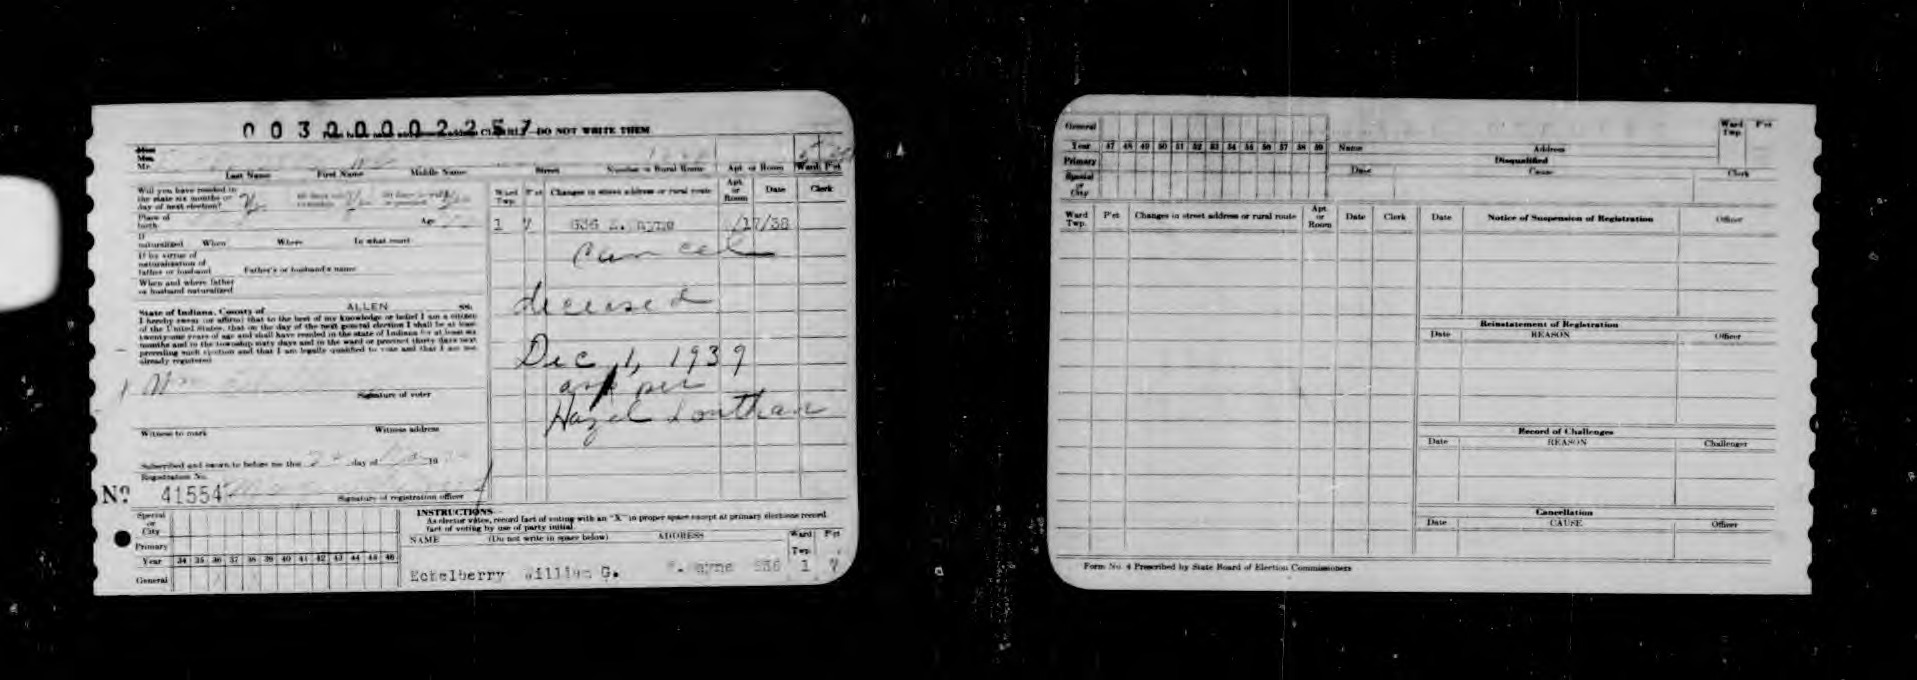 00300002257
DO NOT WRITE THEM
Mrs.
Mr.
Last Name First Name Middle Name Street Number or Rural Route Apt. or Room Ward P'ct
Will you have resided in
the state six months or
day of next election?
Place of
birth
Age
If
naturalized When Where In what court
If by virtue of
naturalization of
father or husband Father's or husband's name
When and where father
or husband naturalized
State of Indiana, County of ALLEN ss:
I hereby swear (or affirm) that to the best of my knowledge or belief I am a citizen
of the United States, that on the day of the next general election I shall be at least
twenty-one years of age and shall have resided in the state of Indiana for at least six
months and in the township sixty days and in the ward or precinct thirty days next
preceding such election and that I am legally qualified to vote and that I am not
already registered
Signature of voter
Witness to mark Witness address
Subscribed and sworn to before me this day of 19
Registration No.
No 41554
Signature of registration officer
Ward Twp. P'ct Changes in street address or rural route Apt. or Room Date Clerk
1 7 636 /17/38
Cancel
deceased
Dec 1, 1939
per
Hazel Louthan
Special
or
City
Primary
Year 34 35 36 37 38 39 40 41 42 43 44 45 46
General
INSTRUCTIONS
As elector votes, record fact of voting with an "X" in proper space except at primary elections record
fact of voting by use of party initial
NAME (Do not write in space below) ADDRESS Ward Twp. P'ct
Eckelberry William G. 636 1 7
General
Year 47 48 49 50 51 52 53 54 55 56 57 58 59
Primary
Special
or
City
Name Address
Ward Twp. P'ct
Disqualified
Date Cause Clerk
Ward Twp. P'ct Changes in street address or rural route Apt. or Room Date Clerk
Date Notice of Suspension of Registration Officer
Reinstatement of Registration
Date REASON Officer
Record of Challenges
Date REASON Challenger
Cancellation
Date CAUSE Officer
Form No. 4 Prescribed by State Board of Election Commissioners